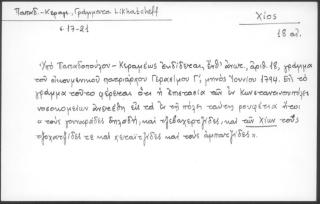 Παπαδ.-Κεραμ., Γράμματα Likhatcheff
Χίος
σ. 17-21
18 αἰ.
Ὑπὸ Παπαδοπούλου-Κεραμέως ἐκδίδεται, ἀριθ. 18, γράμμα
τοῦ οἰκουμενικοῦ πατριάρχου Γερασίμου Γ', μηνὸς Ἰουνίου 1794. Εἰς τὸ
γράμμα τοῦτο φέρεται ὅτι ἡ ἐπιστασία τῶν ἐν Κωνσταντινουπόλει
νοσοκομείων ἀνετέθη εἰς τὰ ἐν τῇ πόλει ταύτῃ ρουφέτια ἤτοι
«τοὺς γουναράδες δηλαδή, καὶ τζοβαερτζῆδες, καὶ τῶν Χίων τοὺς
τζοχατζῆδες τε καὶ καὶ τοὺς ἀμπατζῆδες».